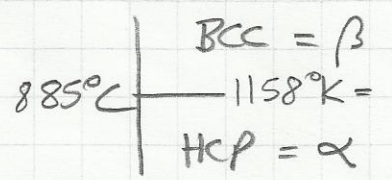 BCC = β
885°C 1158°K =
HCP = α